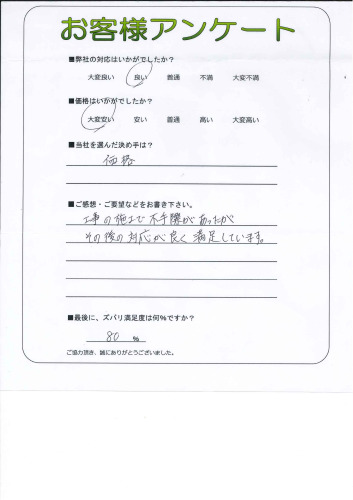 お客様アンケート
■弊社の対応はいかがでしたか?
大変良い 良い 普通 不満 大変不満
■価格はいかがでしたか?
大変安い 安い 普通 高い 大変高い
■当社を選んだ決め手は?
価格
■ご感想・ご要望などをお書き下さい。
工事の施工で不手際があったが
その後の対応が良く満足しています。
■最後に、ズバリ満足度は何%ですか?
80 %
ご協力頂き、誠にありがとうございました。